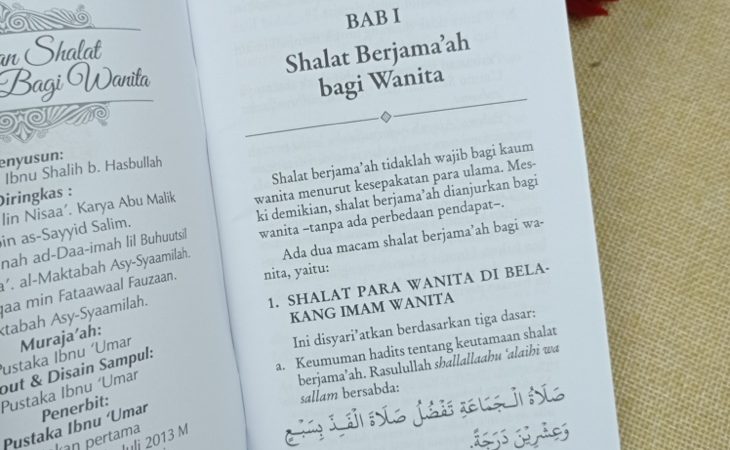 an Shalat
Bagi Wanita
enyusun:
Ibnu Shalih b. Hasbullah
Diringkas :
lin Nisaa'. Karya Abu Malik
bin as-Sayyid Salim.
nah ad-Daa-imah lil Buhuutsil
a'. al-Maktabah Asy-Syaamilah.
qaa min Fataawaal Fauzaan.
ktabah Asy-Syaamilah.
Muraja'ah:
Pustaka Ibnu 'Umar
out & Disain Sampul:
Pustaka Ibnu 'Umar
Penerbit:
Pustaka Ibnu 'Umar
kan pertama
uli 2013 M
BAB I
Shalat Berjama'ah
bagi Wanita
Shalat berjama'ah tidaklah wajib bagi kaum
wanita menurut kesepakatan para ulama. Mes-
ki demikian, shalat berjama'ah dianjurkan bagi
wanita –tanpa ada perbedaan pendapat–.
Ada dua macam shalat berjama'ah bagi wa-
nita, yaitu:
1. SHALAT PARA WANITA DI BELA-
KANG IMAM WANITA
Ini disyari'atkan berdasarkan tiga dasar:
a. Keumuman hadits tentang keutamaan shalat
berjama'ah. Rasulullah shallallaahu 'alaihi wa
sallam bersabda:
صَلَاةُ الْجَمَاعَةِ تَفْضُلُ صَلَاةَ الْفَذِّ بِسَبْعٍ
وَعِشْرِيْنَ دَرَجَةً.